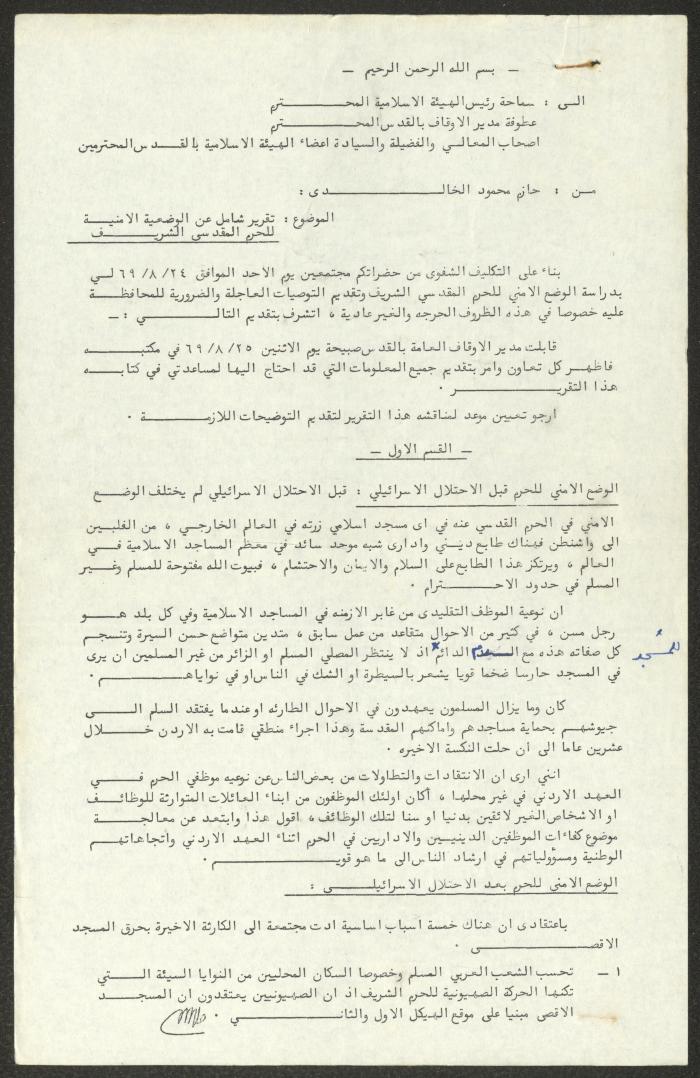 — بسم الله الرحمن الرحيم —
الى : سماحة رئيس الهيئة الاسلامية المحترم
عطوفة مدير الاوقاف بالقدس المحترم
اصحاب المعالي والفضيلة والسيادة اعضاء الهيئة الاسلامية بالقدس المحترمين
من : حازم محمود الخالدى :
الموضوع : تقرير شامل عن الوضعية الامنية
للحرم المقدسي الشريف
بناء على التكليف الشفوى من حضراتكم مجتمعين يوم الاحد الموافق ٦٩/٨/٢٤ لي
بدراسة الوضع الامني للحرم المقدسي الشريف وتقديم التوصيات العاجلة والضرورية للمحافظة
عليه خصوصا في هذه الظروف الحرجه والغير عادية ، اتشرف بتقديم التالي : —
قابلت مدير الاوقاف العامة بالقدس صبيحة يوم الاثنين ٦٩/٨/٢٥ في مكتبه
فاظهر كل تعاون وامر بتقديم جميع المعلومات التي قد احتاج اليها لمساعدتي في كتابه
هذا التقرير .
ارجو تعيين موعد لمناقشه هذا التقرير لتقديم التوضيحات اللازمة .
— القسم الاول —
الوضع الامني للحرم قبل الاحتلال الاسرائيلي : قبل الاحتلال الاسرائيلي لم يختلف الوضع
الامني في الحرم القدسي عنه في اى مسجد اسلامي زرته في العالم الخارجي ، من الفلبين
الى واشنطن فهناك طابع ديني وادارى شبه موحد سائد في معظم المساجد الاسلامية في
العالم ، ويرتكز هذا الطابع على السلام والايمان والاحتشام ، فبيوت الله مفتوحة للمسلم وغير
المسلم في حدود الاحترام .
ان نوعية الموظف التقليدى من غابر الازمنه في المساجد الاسلامية وفي كل بلد هو
رجل مسن ، في كثير من الاحوال متقاعد من عمل سابق ، متدين متواضع حسن السيرة وتنسجم
كل صفاته هذه مع الدائم اذ لا ينتظر المصلي المسلم او الزائر من غير المسلمين ان يرى
للمسجد
في المسجد حارسا ضخما قويا يشعر بالسيطرة او الشك في الناس او في نواياهم .
كان وما يزال المسلمون يعهدون في الاحوال الطارئه او عندما يفتقد السلم الى
جيوشهم بحماية مساجدهم واماكنهم المقدسة وهذا اجراء منطقي قامت به الاردن خلال
عشرين عاما الى ان حلت النكسة الاخيره .
انني ارى ان الانتقادات والتطاولات من بعض الناس عن نوعيه موظفي الحرم في
العهد الاردني في غير محلها ، أكان اولئك الموظفون من ابناء العائلات المتوارثة للوظائف
او الاشخاص الغير لائقين بدنيا او سنا لتلك الوظائف ، اقول هذا وابتعد عن معالجة
موضوع كفاءات الموظفين الدينيين والاداريين في الحرم اثناء العهد الاردني واتجاهاتهم
الوطنية ومسؤولياتهم في ارشاد الناس الى ما هو قويم .
الوضع الامني للحرم بعد الاحتلال الاسرائيلي :
باعتقادى ان هناك خمسة اسباب اساسية ادت مجتمعة الى الكارثة الاخيرة بحرق المسجد
الاقصى .
١ — تحسب الشعب العربي المسلم وخصوصا السكان المحليين من النوايا السيئة التي
تكنها الحركة الصهيونية للحرم الشريف اذ ان الصهيونيين يعتقدون ان المسجد
الاقصى مبنيا على موقع الهيكل الاول والثاني .